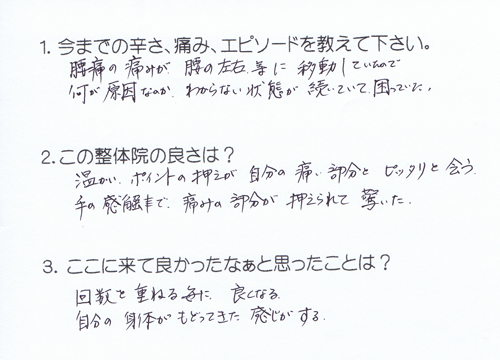 1. 今までの辛さ、痛み、エピソードを教えて下さい。
腰痛の痛みが 腰の左右等に 移動していたので
何が原因なのか、わからない状態が 続いていて、困っていた。
2.この整体院の良さは？
温かい、ポイントの押えが 自分の痛い部分と ピッタリと会う。
手の感触まで、痛みの部分が 押えられて 驚いた。
3. ここに来て良かったなぁと思ったことは？
回数を重ねる毎に、良くなる。
自分の身体がもどってきた感じがする。